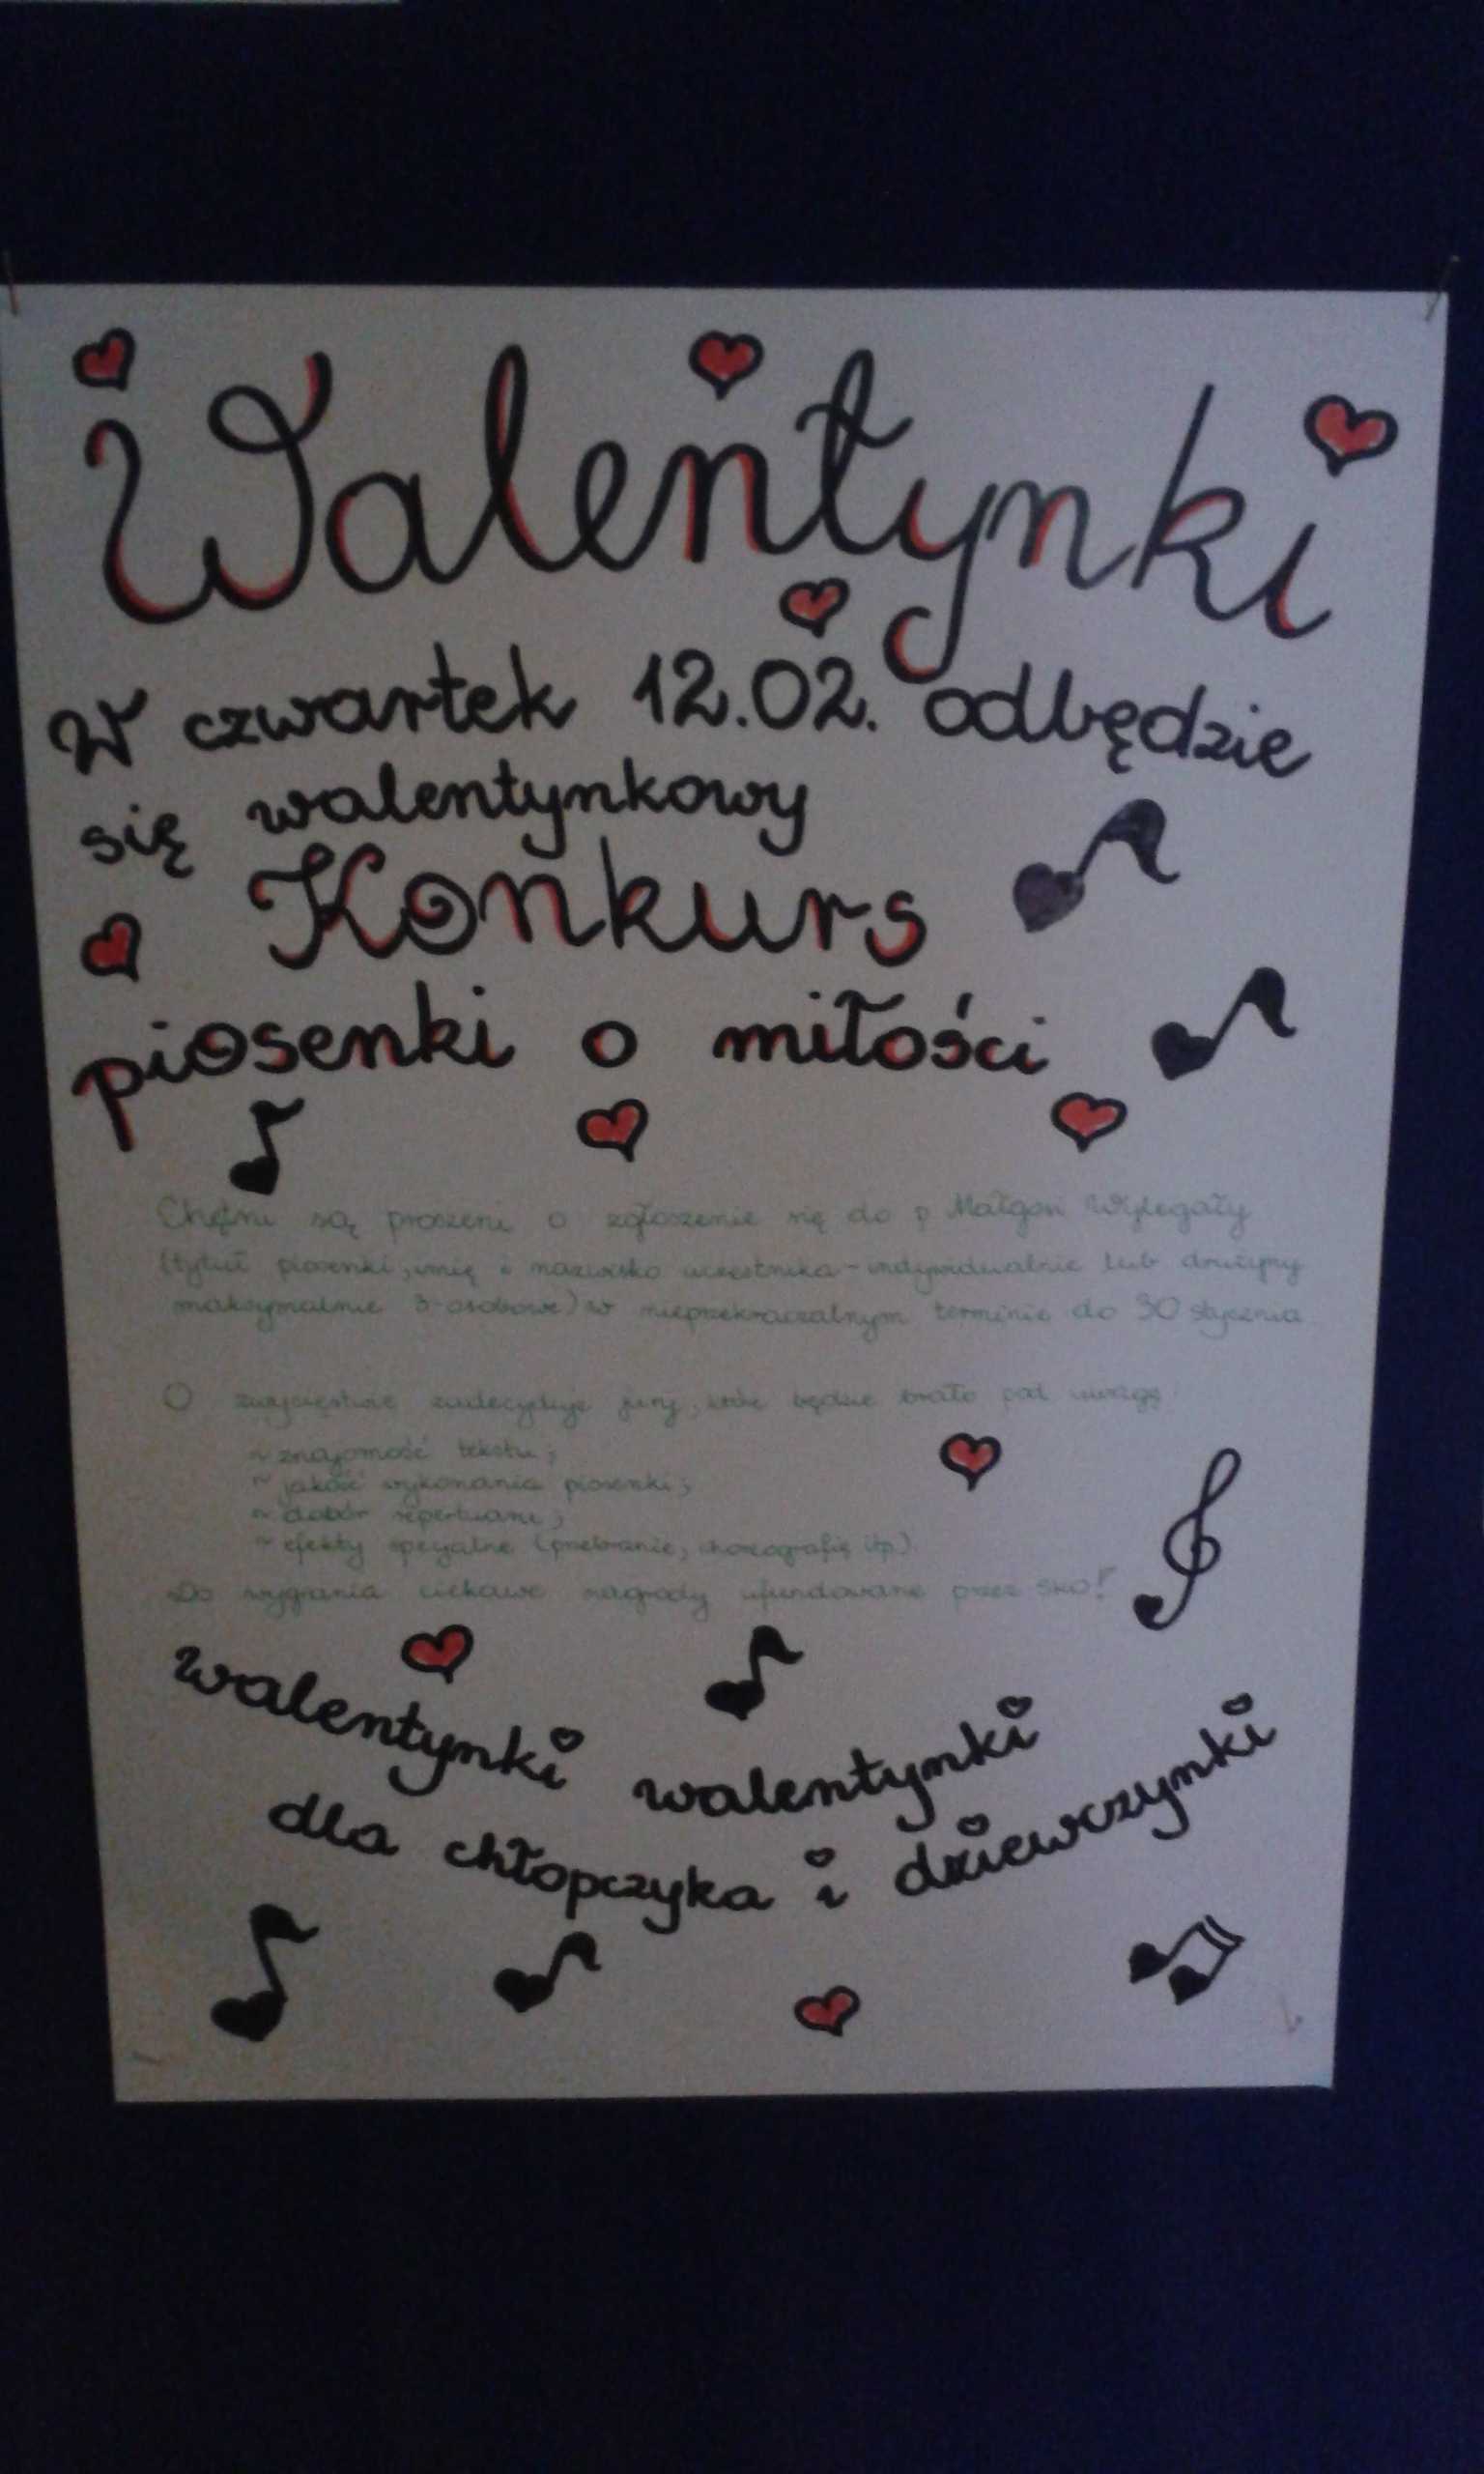 Walentynki
W czwartek 12.02. odbędzie
się walentynkowy
Konkurs
piosenki o miłości
Chętni są proszeni o zgłoszenie się do p. Małgosi Wylegały
(tytuł piosenki, imię i nazwisko uczestnika - indywidualnie lub drużyny
maksymalnie 3-osobowe) w nieprzekraczalnym terminie do 30 stycznia.
O zwycięstwie zadecyduje jury, które będzie brało pod uwagę:
~ znajomość tekstu;
~ jakość wykonania piosenki;
~ dobór repertuaru;
~ efekty specjalne (przebranie, choreografię itp.).
Do wygrania ciekawe nagrody ufundowane przez SKO!
walentynki walentynki
dla chłopczyka i dziewczynki